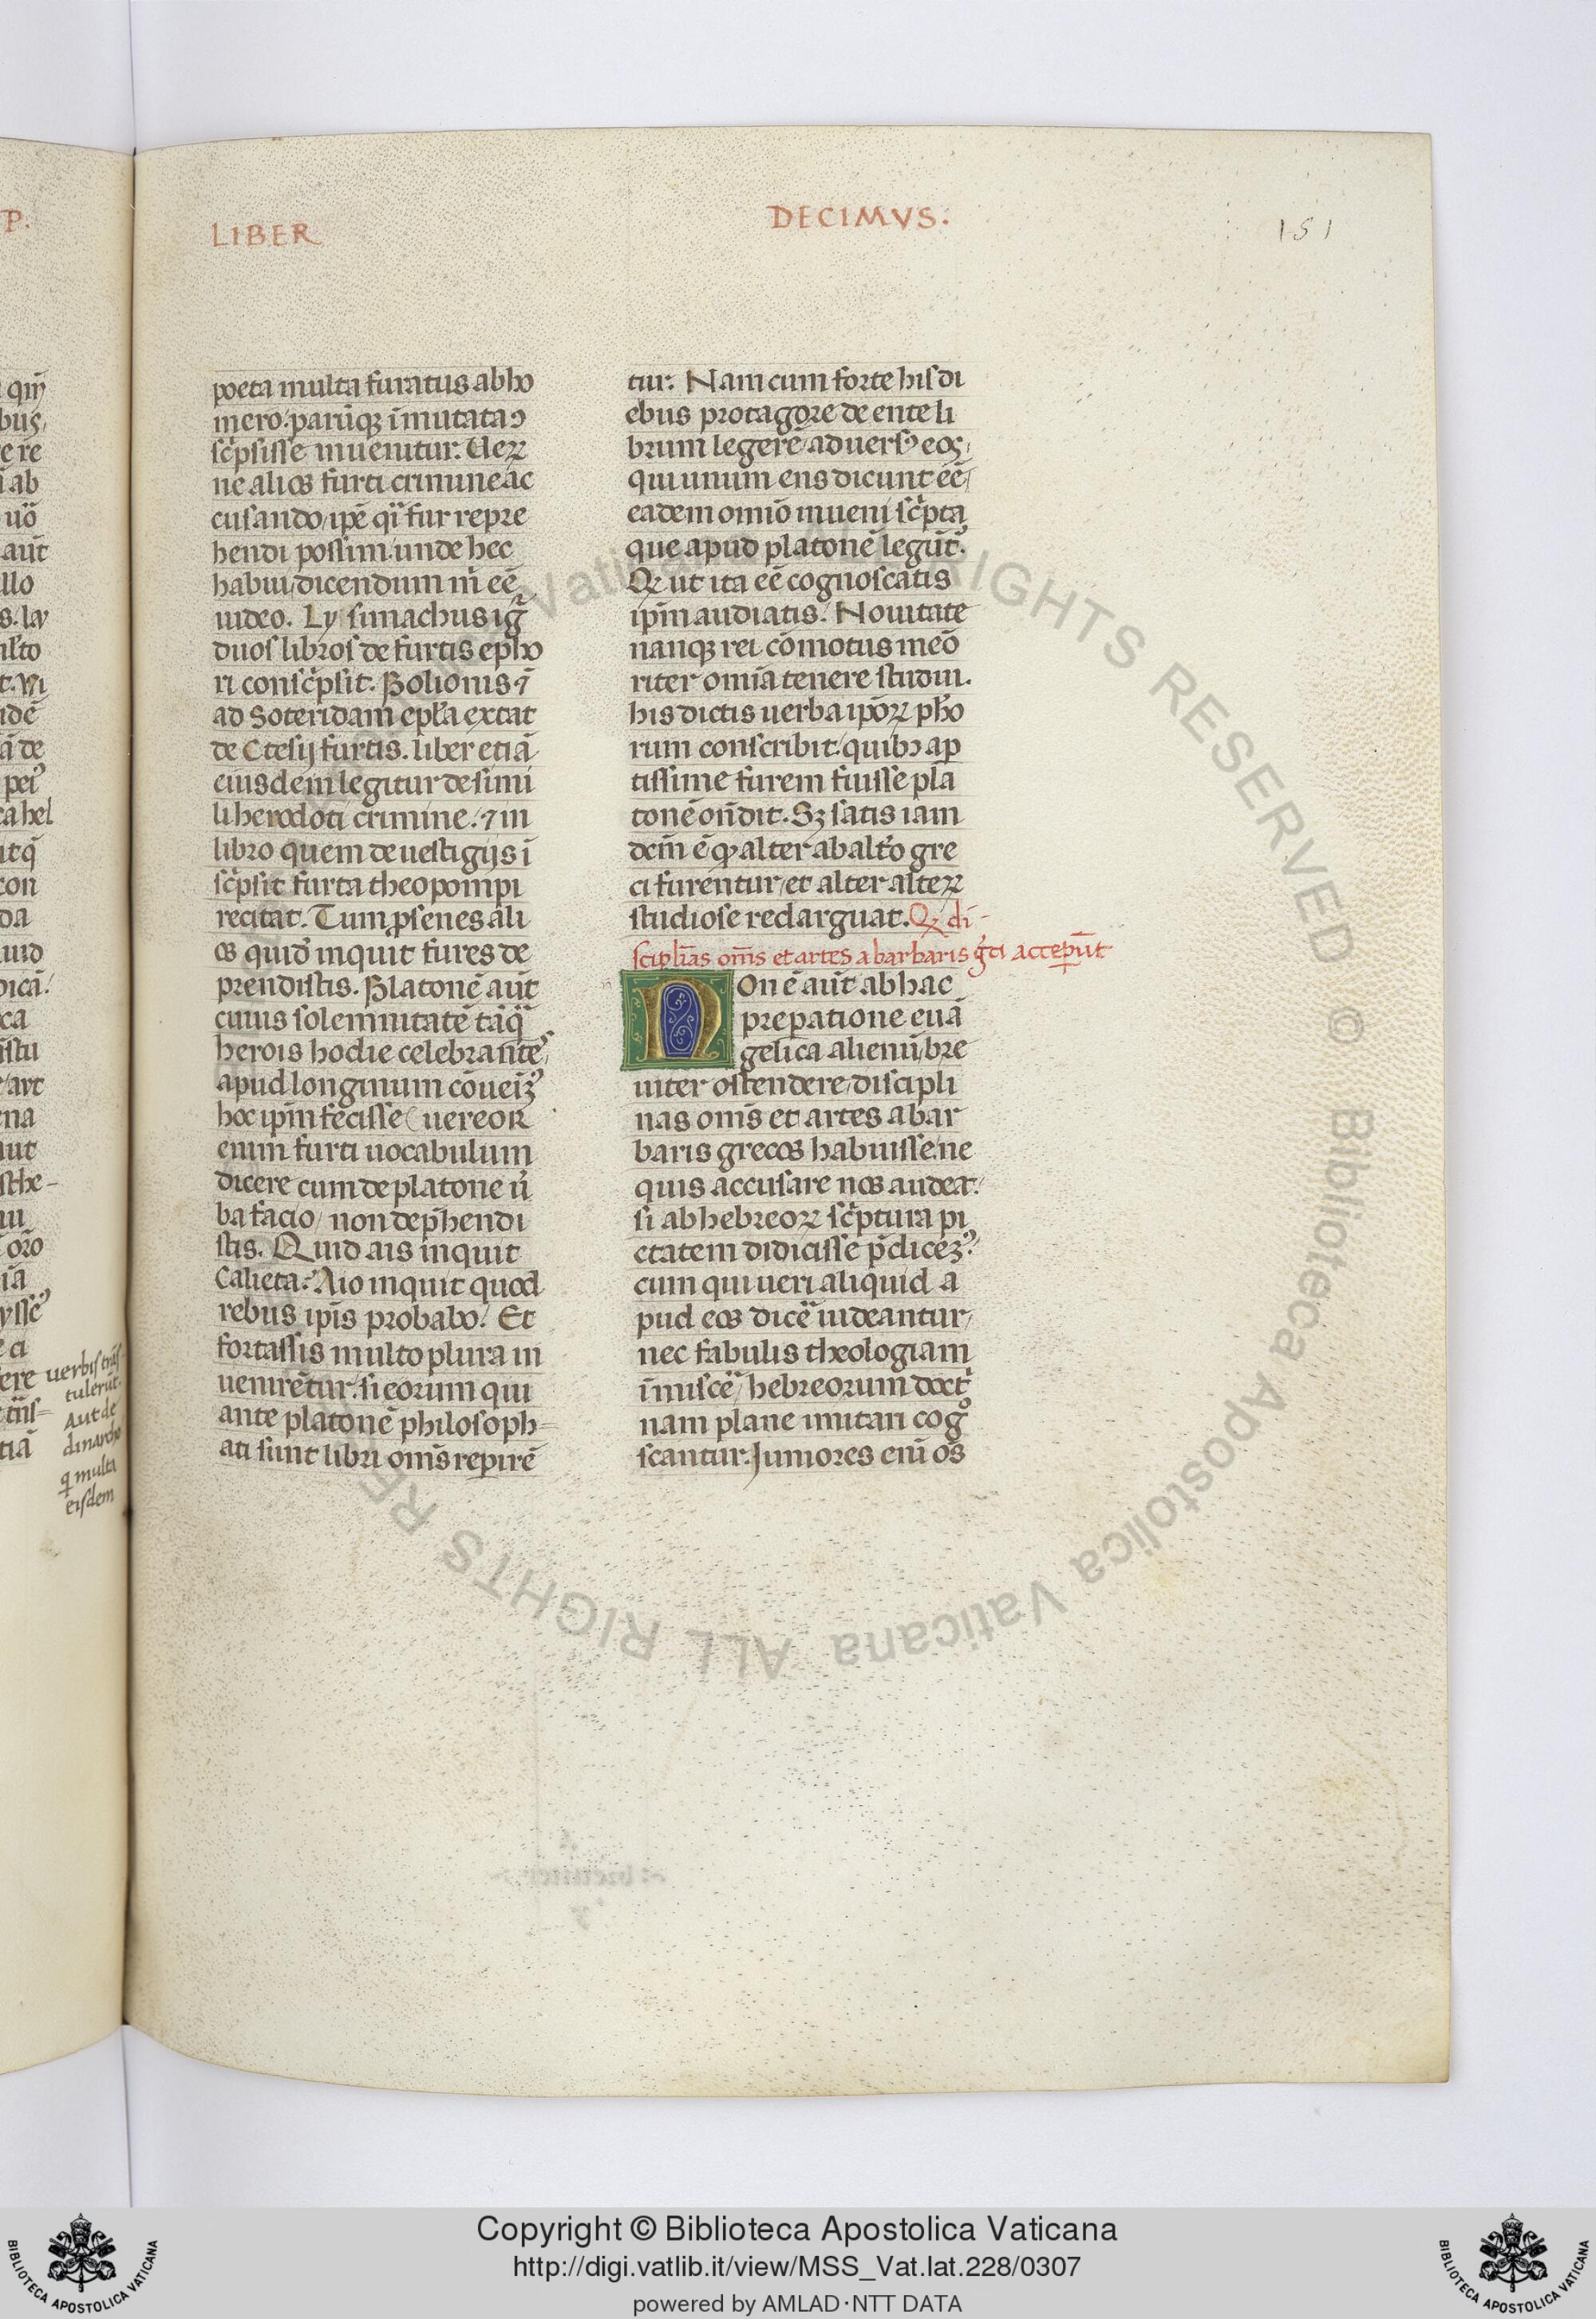 P.
LIBER
DECIMVS.
151
poeta multa furatus ab ho
mero: parūqꝫ īmutata ꝯ
sc̄psisse inuenitur. Ueꝝ
ne alios furti crimine ac
cusando ipē q̄i fur repre
hendi possim: unde hec
habui dicendum m̄ eē
uideo. Lysimachus igr̄
duos libros de furtis epho
ri consc̄psit. Polionis ⁊
ad Soteridam epl̄a extat
de Ctesij furtis. liber etiā
eiusdem legitur de simi
li herodoti crimine. ⁊ in
libro quem de uestigijs ī
sc̄psit furta theopompi
recitat. Tum ꝓsenes ali
os quid̓ inquit fures de
prendistis. Platonē aūt
cuius solemnitatē tāq̄
herois hodie celebrantes
apud longinum cōueīꝰ
hoc ipm̄ fecisse (uereor
enim furti uocabulum
dicere cum de platone ū
ba facio) non dep̄hendi
stis. Quid ais inquit
Calieta? Aio inquit quod
rebus ip̄is probabo. Et
fortassis multo plura in
uenirētur. si eorum qui
ante platonē philosoph=
ati sunt libri omīs repirē
tur. Nam cum forte his di
ebus protagore de ente li
brum legerē aduersꝰ eos,
qui unum ens dicunt eē,
eadem omīo inueni sc̄pta
que apud platonē legūtꝰ.
Qꝫ ut ita eē cognoscatis
ipm̄ audiatis. Nouitate
nanqꝫ rei cōmotus meō
riter omīa tenere studui.
his dictis uerba ipōꝝ pho
rum conscribit: quibꝫ ap
tissime furem fuisse pla
tonē on̄dit. Sꝫ satis iam
dcm̄ ē qꝫ alter ab altō gre
ci furentur et alter alteꝝ
studiose redarguat. Qꝫ di-
sciplīas om̄s et artes a barbaris gͥci acceperūt
Non ē aūt ab hac
prepatione euā
gelica alienū bre
uiter ostendere discipli
nas om̄s et artes a bar
baris grecos habuisse. ne
quis accusare nos audeat.
si ab hebreoꝝ sc̄ptura pi
etatem didicisse p̄diceꝫꝰ.
cum qui ueri aliquid a
pud eos dicē uideantur,
nec fabulis theologiam
īmiscē, hebreorum doctͥ
nam plane imitari cogͦ
scantur. Juniores eni os̄
uerbis trās
tulerūt.
Aut de
dinarcho
q̄ multa
eisdem
Copyright © Biblioteca Apostolica Vaticana
http://digi.vatlib.it/view/MSS_Vat.lat.228/0307
powered by AMLAD·NTT DATA
BIBLIOTECA APOSTOLICA VATICANA
BIBLIOTECA APOSTOLICA VATICANA